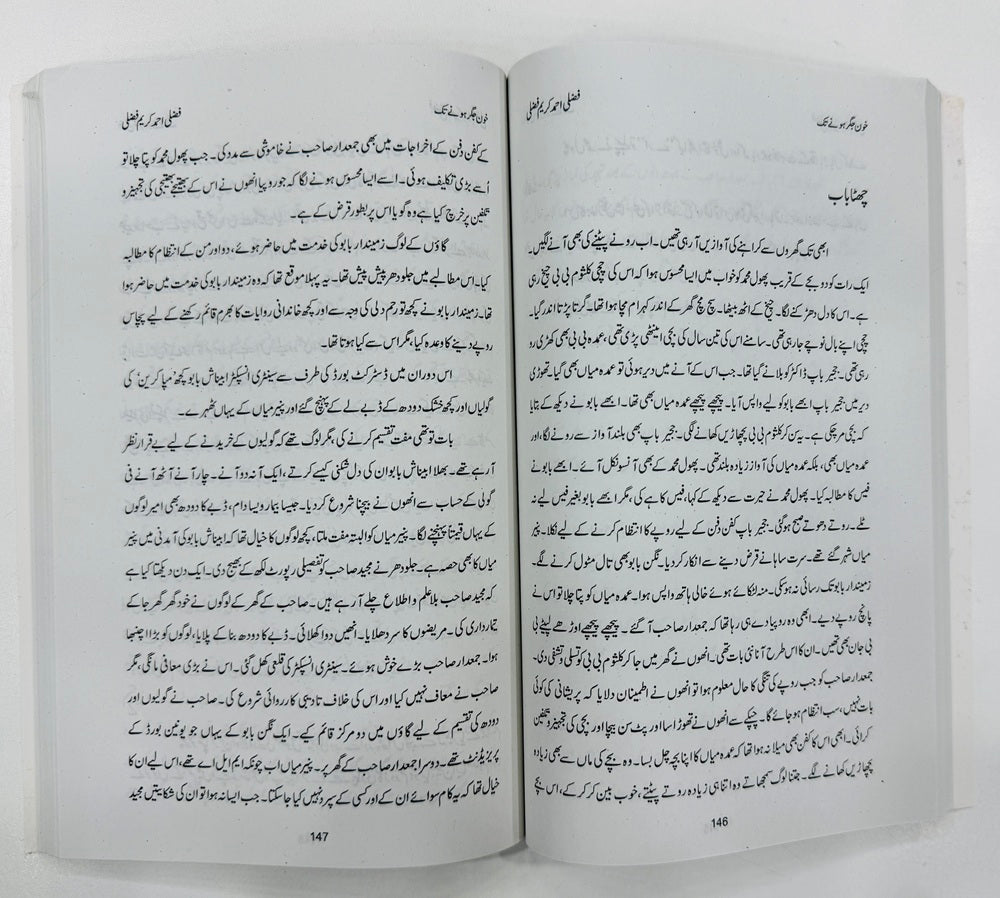 خون جگر ہونے تک
فضلی احمد کریم فضلی
چھٹا باب
ابھی تک گھروں سے کراہنے کی آوازیں آ رہی تھیں۔ اب رونے پیٹنے کی بھی آنے لگیں۔
ایک رات کو دو بجے کے قریب پھول محمد کو خواب میں ایسا محسوس ہوا کہ اس کی چچی کلثوم بی بی چیخ رہی
ہے۔ اس کا دل دھڑکنے لگا۔ چیخ کے اٹھ بیٹھا۔ سچ مچ گھر کے اندر کہرام مچا ہوا تھا۔ گرتا پڑتا اندر گیا۔
چچی اپنے بال نوچے جا رہی تھی۔ سامنے اس کی تین سال کی بچی اینٹھی پڑی تھی، عمدہ بی بی بھی کھڑی رو
رہی تھی۔ ججیر باپ ڈاکٹر کو بلانے گیا تھا۔ جب اس کے آنے میں دیر ہوئی تو عمدہ میاں بھی گیا۔ تھوڑی
دیر میں ججیر باپ ابھے بابو کو لیے واپس آیا۔ پیچھے پیچھے عمدہ میاں بھی تھا۔ ابھے بابو نے دیکھ کے بتایا
کہ بچی مر چکی ہے۔ یہ سن کر کلثوم بی بی پچھاڑیں کھانے لگی۔ ججیر باپ بھی بلند آواز سے رونے لگا، اور
عمدہ میاں بھی، بلکہ عمدہ میاں کی آواز زیادہ بلند تھی۔ پھول محمد کے بھی آنسو نکل آئے۔ ابھے بابو نے
فیس کا مطالبہ کیا۔ پھول محمد نے حیرت سے دیکھ کے کہا، فیس کاہے کی، مگر ابھے بابو بغیر فیس لیے نہ
ٹلے۔ روتے دھوتے صبح ہو گئی۔ ججیر باپ کفن دفن کے لیے روپے کا انتظام کرنے کے لیے نکلا۔ پنیر
میاں شہر گئے تھے۔ سرت ساہا نے قرض دینے سے انکار کر دیا۔ نگن بابو بھی ٹال مٹول کرنے لگے۔
زمیندار بابو تک رسائی نہ ہو سکی۔ منہ لٹکائے ہوئے خالی ہاتھ واپس ہوا۔ عمدہ میاں کو پتا چلا تو اس نے
پانچ روپے دیے۔ ابھی وہ روپیا دے ہی رہا تھا کہ جمعدار صاحب آ گئے۔ پیچھے پیچھے اوڑھے لپیٹے بی
بی جان بھی تھیں۔ ان کا اس طرح آنا نئی بات تھی۔ انھوں نے گھر میں جا کر کلثوم بی بی کو تسلی و تشفی دی۔
جمعدار صاحب کو جب روپے کی تنگی کا حال معلوم ہوا تو انھوں نے اطمینان دلایا کہ پریشانی کی کوئی
بات نہیں، سب انتظام ہو جائے گا۔ چپکے سے انھوں نے تھوڑا سا اور پٹ سن بیچا اور بچی کی تجہیز و تکفین
کرائی۔ ابھی اس کا کفن بھی میلا نہ ہوا تھا کہ عمدہ میاں کا اپنا بچہ چل بسا۔ وہ بچے کی ماں سے بھی زیادہ
پچھاڑیں کھانے لگے۔ جتنا لوگ سمجھاتے وہ اتنا ہی زیادہ روتے پیٹتے، خوب بین کر کر کے، اس بچے
146
خون جگر ہونے تک
فضلی احمد کریم فضلی
کے کفن دفن کے اخراجات میں بھی جمعدار صاحب نے خاموشی سے مدد کی۔ جب پھول محمد کو پتا چلا تو
اُسے بڑی تکلیف ہوئی۔ اسے ایسا محسوس ہونے لگا کہ جو روپیا انھوں نے اس کے بھتیجے بھتیجی کی تجہیز و
تکفین پر خرچ کیا ہے وہ گویا اس پر بطور قرض کے ہے۔
گاؤں کے لوگ زمیندار بابو کی خدمت میں حاضر ہوئے، دوا درمن کے انتظام کا مطالبہ
کیا۔ اس مطالبے میں جلودھر پیش پیش تھا۔ یہ پہلا موقع تھا کہ وہ زمیندار بابو کی خدمت میں حاضر ہوا
تھا۔ زمیندار بابو نے کچھ تو رحم دلی کی وجہ سے اور کچھ خاندانی روایات کا بھرم قائم رکھنے کے لیے پچاس
روپے دینے کا وعدہ کیا، مگر اس سے کیا ہوتا تھا۔
اس دوران میں ڈسٹرکٹ بورڈ کی طرف سے سینٹری انسپکٹر ابیناش بابو کچھ ’میپا کرین‘ کی
گولیاں اور کچھ خشک دودھ کے ڈبے لے کے پہنچ گئے اور پنیر میاں کے یہاں ٹھہرے۔
بات تو تھی مفت تقسیم کرنے کی، مگر لوگ تھے کہ گولیوں کے خریدنے کے لیے بے قرار نظر
آ رہے تھے۔ بھلا ابیناش بابو ان کی دل شکنی کیسے کرتے، ایک آنہ دو آنے۔ چار آنے آٹھ آنے فی
گولی کے حساب سے انھوں نے بیچنا شروع کر دیا۔ جیسا بیمار ویسا دام، ڈبے کا دودھ بھی امیر لوگوں
کے یہاں قیمتاً پہنچنے لگا۔ پنیر میاں کو البتہ مفت ملتا، کچھ لوگوں کا خیال تھا کہ ابیناش بابو کی آمدنی میں پنیر
میاں کا بھی حصہ ہے۔ جلودھر نے مجید صاحب کو تفصیلی رپورٹ لکھ کے بھیج دی۔ ایک دن دیکھتا کیا ہے
کہ مجید صاحب بلا علم و اطلاع چلے آ رہے ہیں۔ صاحب کے گھر کے لوگوں نے خود گھر گھر جا کے
تیمارداری کی۔ مریضوں کا سر دھلایا۔ انھیں دوا کھلائی۔ ڈبے کا دودھ بنا کے پلایا، لوگوں کو بڑا اچنبھا
ہوا۔ جمعدار صاحب بڑے خوش ہوئے۔ سینٹری انسپکٹر کی قلعی کھل گئی۔ اس نے بڑی معافی مانگی، مگر
صاحب نے معاف نہیں کیا اور اس کی خلاف تادیبی کارروائی شروع کی۔ صاحب نے گولیوں اور
دودھ کی تقسیم کے لیے گاؤں میں دو مرکز قائم کیے۔ ایک نگن بابو کے یہاں جو یونین بورڈ کے
پریزیڈنٹ تھے۔ دوسرا جمعدار صاحب کے گھر پر۔ پنیر میاں اب چونکہ ایم ایل اے تھے، اس لیے ان کا
خیال تھا کہ یہ کام سوائے ان کے اور کسی کے سپرد نہیں کیا جا سکتا۔ جب ایسا نہ ہوا تو ان کی شکایتیں مجید
147